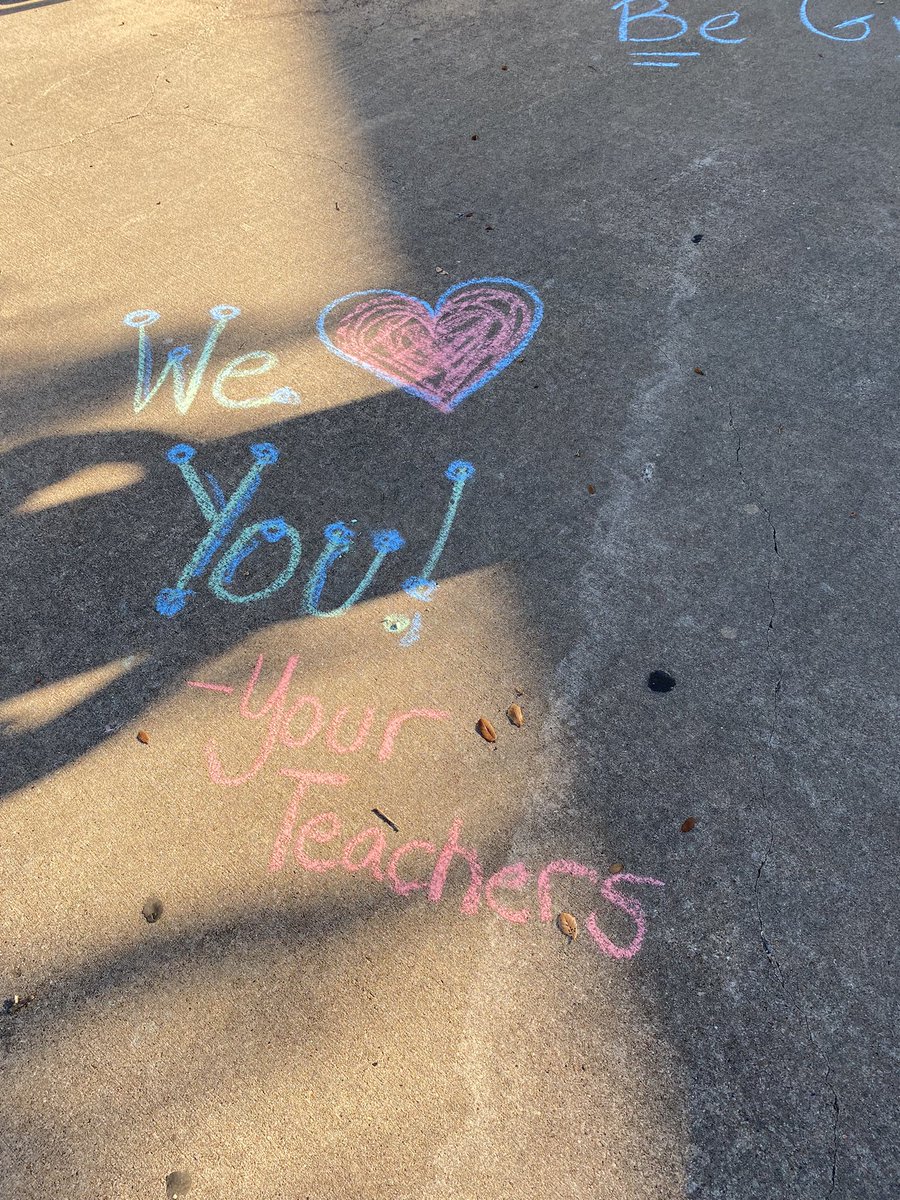 Be
We ❤
You!
-Your
Teachers